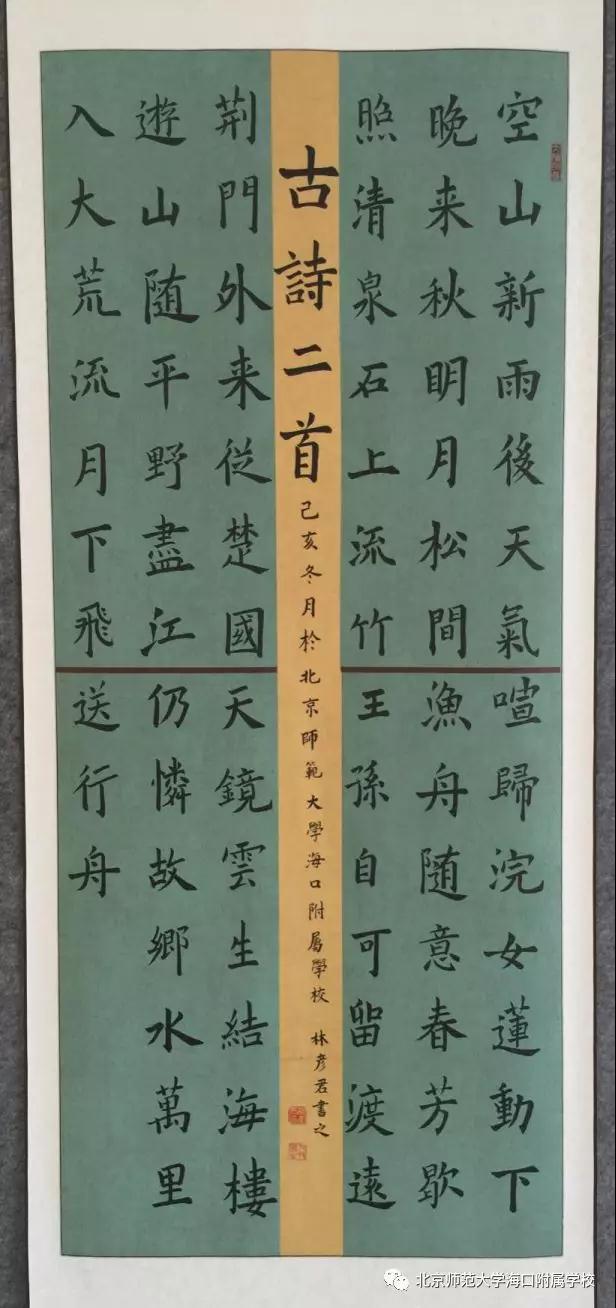 空山新雨後天氣
晚来秋眀月松間
照清泉石上流竹
喧歸浣女蓮動下
漁舟隨意春芳歇
王孫自可留渡遠
古詩二首
己亥冬月於北京師範大學海口附属學校 林彦君書之
荆門外来従楚國
遊山随平野盡江
入大荒流月下飛
天鏡雲生結海樓
仍憐故鄉水萬里
送行舟
北京师范大学海口附属学校